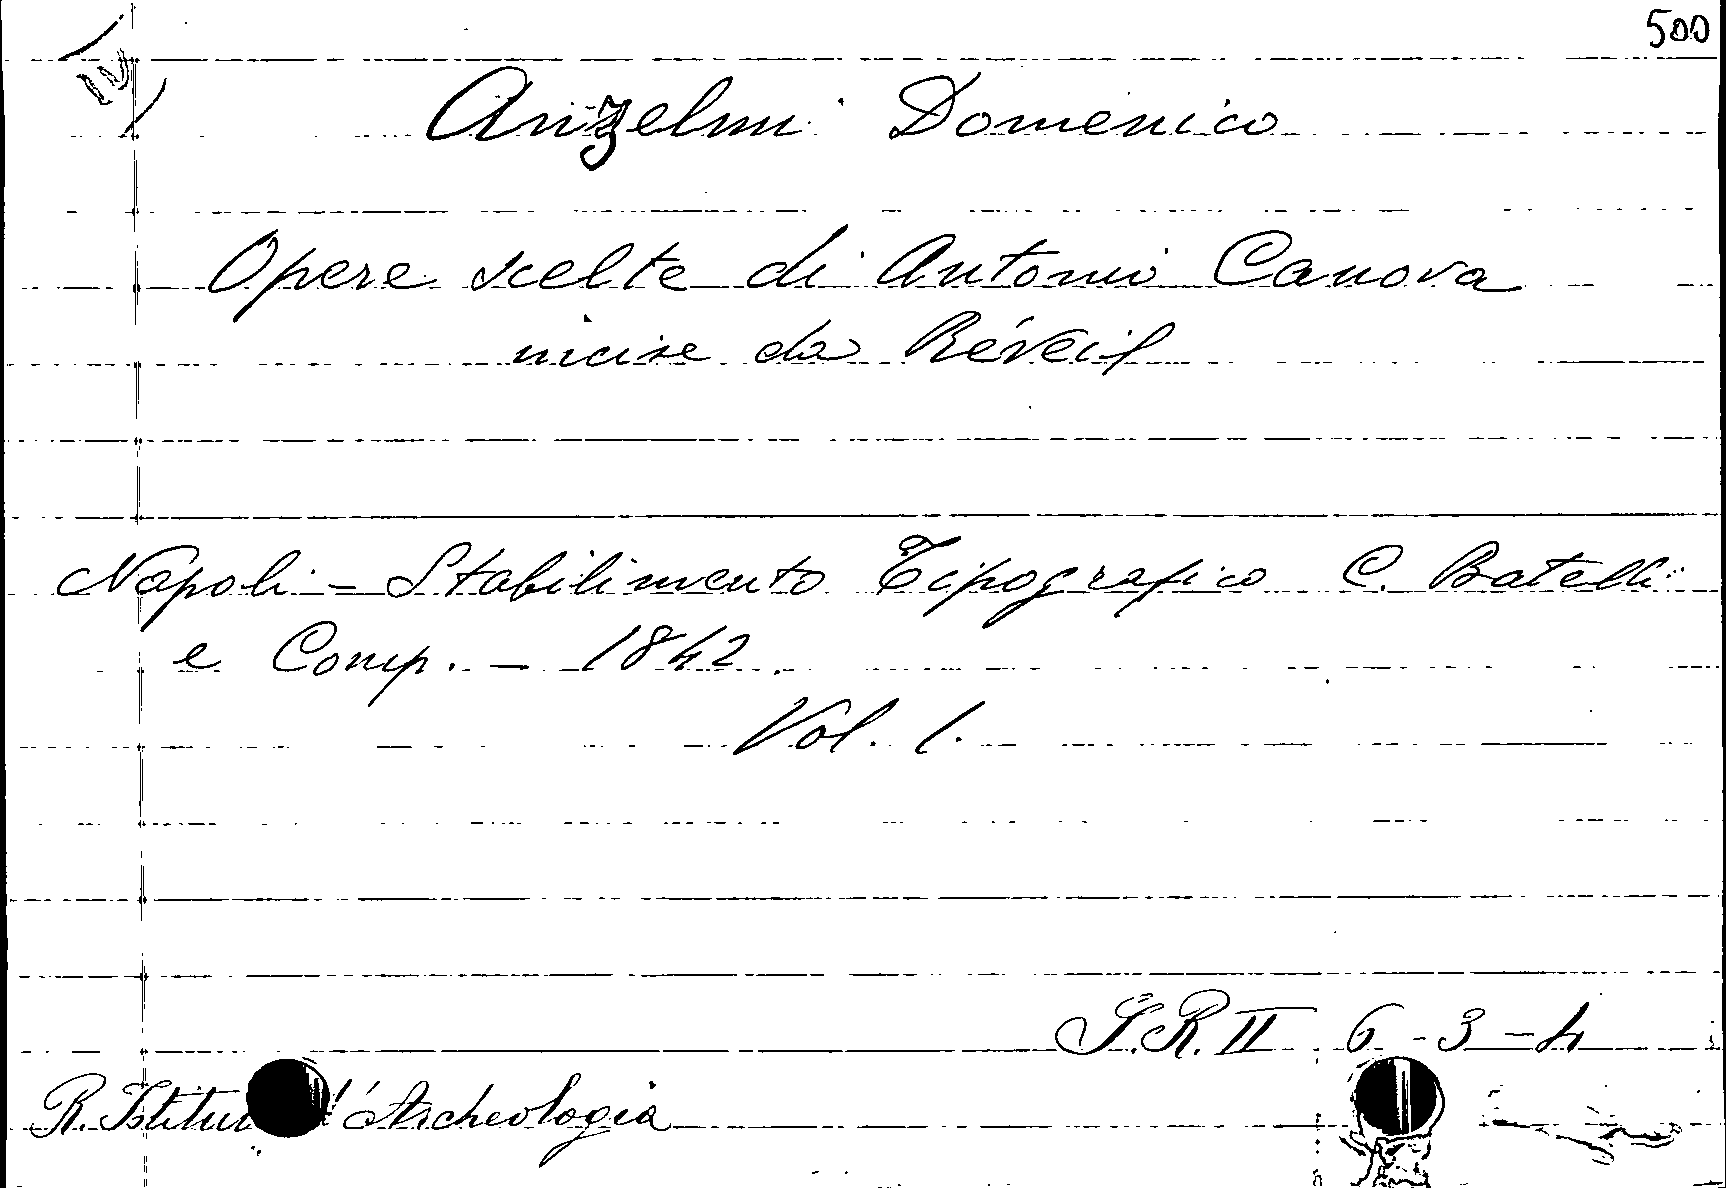 500
IV
Anzelmi Domenico
Opere scelte di Antonio Canova
incise da Réveil
Napoli - Stabilimento Tipografico C. Batelli
e Comp. - 1842.
Vol. 1.
S.R. II 6-3-4
R. Istitu d'Archeologia